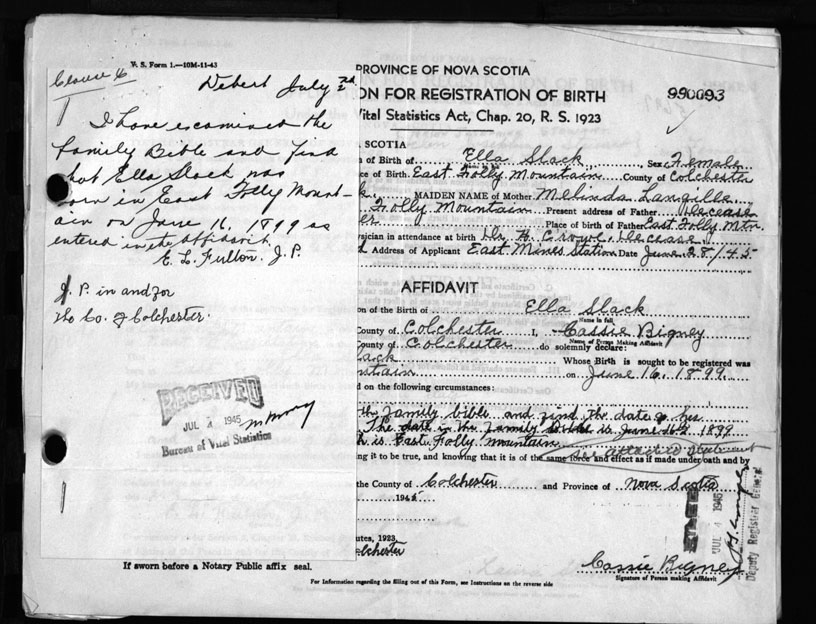 V. S. Form 1.—10M-11-43
Debert July 2nd
I have examined the
family Bible and find
that Ella Slack was
born in East Folly Mount-
ain on June 16, 1899 as
entered in the affidavit.
E. L. Fulton. J. P.
J. P. in and for
the Co. of Colchester.
RECEIVED
JUL 4 1945
Bureau of Vital Statistics
PROVINCE OF NOVA SCOTIA
ON FOR REGISTRATION OF BIRTH
990093
Vital Statistics Act, Chap. 20, R. S. 1923
SCOTIA
of Birth of Ella Slack Sex Female
ce of Birth East Folly Mountain County of Colchester
k. MAIDEN NAME of Mother Melinda Langille
Folly Mountain Present address of Father Decease
er Place of birth of Father East Folly Mtn.
ysician in attendance at birth Dr. H. Crowe, Decease
d Address of Applicant East Mines Station Date June 28/45
AFFIDAVIT
on of the Birth of Ella Slack
Name in full
County of Colchester I, Cassie Bigney
Name of Person Making Affidavit
ounty of Colchester do solemnly declare:
lack Whose Birth is sought to be registered was
untain on June 16, 1899.
d on the following circumstances:
th family bible and find the date of his
The date in the family bible is June 16, 1899
h is East Folly Mountain
ing it to be true, and knowing that it is of the same force and effect as if made under oath and by
the County of Colchester and Province of Nova Scotia
1945
utes, 1923,
olchester
FILED
JUL 4 1945
Deputy Registrar General
Cassie Bigney
Signature of Person making Affidavit
If sworn before a Notary Public affix seal.
For Information regarding the filling out of this Form, see Instructions on the reverse side